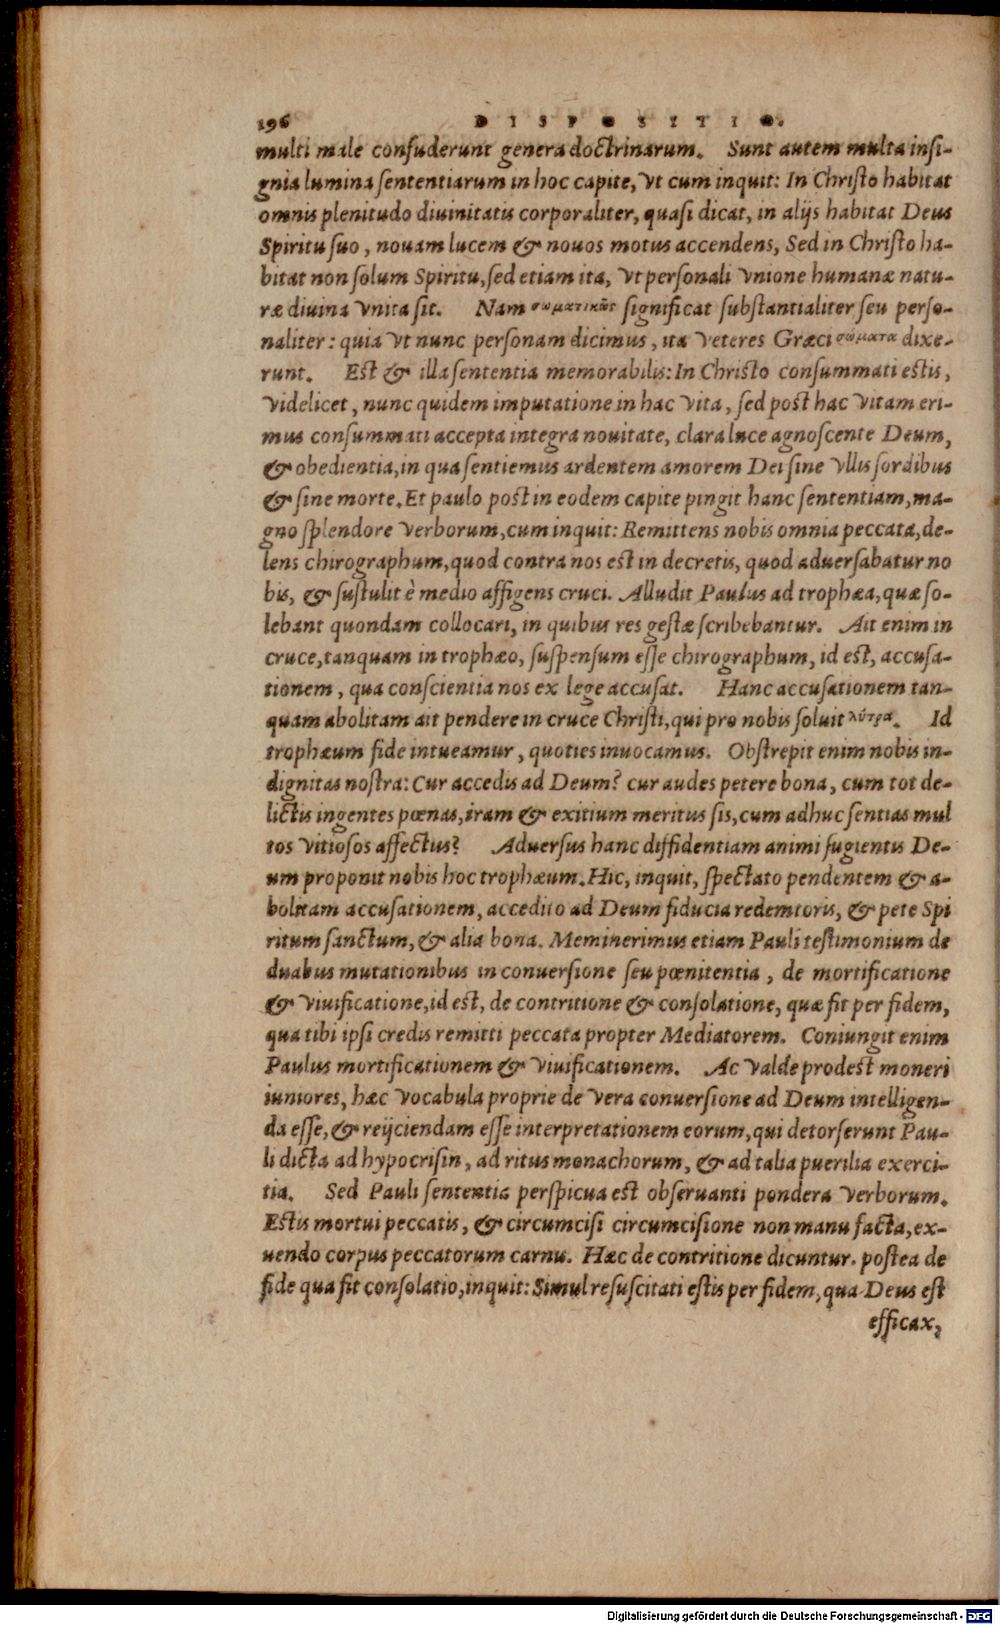 196 DISPOSITIO.
multi male confuderunt genera doctrinarum. Sunt autem multa insi-
gnia lumina sententiarum in hoc capite, vt cum inquit: In Christo habitat
omnis plenitudo diuinitatis corporaliter, quasi dicat, in alijs habitat Deus
Spiritu suo, nouam lucem & nouos motus accendens, Sed in Christo ha-
bitat non solum Spiritu, sed etiam ita, vt personali vnione humanæ natu-
ræ diuina vnita sit. Nam σωματικῶς significat substantialiter seu perso-
naliter: quia vt nunc personam dicimus, ita veteres Græci σώματα dixe-
runt. Est & illa sententia memorabilis: In Christo consummati estis,
videlicet, nunc quidem imputatione in hac vita, sed post hac vitam eri-
mus consummati accepta integra nouitate, clara luce agnoscente Deum,
& obedientia, in qua sentiemus ardentem amorem Dei sine vllis sordibus
& sine morte. Et paulo post in eodem capite pingit hanc sententiam, ma-
gno splendore verborum, cum inquit: Remittens nobis omnia peccata, de-
lens chirographum, quod contra nos est in decretis, quod aduersabatur no
bis, & sustulit è medio affigens cruci. Alludit Paulus ad trophæa, quæ so-
lebant quondam collocari, in quibus res gestæ scribebantur. Ait enim in
cruce, tanquam in trophæo, suspensum esse chirographum, id est, accusa-
tionem, qua conscientia nos ex lege accusat. Hanc accusationem tan-
quam abolitam ait pendere in cruce Christi, qui pro nobis soluit λύτρα. Id
trophæum fide intueamur, quoties inuocamus. Obstrepit enim nobis in-
dignitas nostra: Cur accedis ad Deum? cur audes petere bona, cum tot de-
lictis ingentes pœnas, iram & exitium meritus sis, cum adhuc sentias mul
tos vitiosos affectus? Aduersus hanc diffidentiam animi fugientis De-
um proponit nobis hoc trophæum. Hic, inquit, spectato pendentem & a-
bolitam accusationem, accedito ad Deum fiducia redemtoris, & pete Spi
ritum sanctum, & alia bona. Meminerimus etiam Pauli testimonium de
duabus mutationibus in conuersione seu pœnitentia, de mortificatione
& viuificatione, id est, de contritione & consolatione, quæ fit per fidem,
qua tibi ipsi credis remitti peccata propter Mediatorem. Coniungit enim
Paulus mortificationem & viuificationem. Ac valde prodest moneri
iuniores, hæc vocabula proprie de vera conuersione ad Deum intelligen-
da esse, & reijciendam esse interpretationem eorum, qui detorserunt Pau-
li dicta ad hypocrisin, ad ritus monachorum, & ad talia puerilia exerci-
tia. Sed Pauli sententia perspicua est obseruanti pondera verborum.
Estis mortui peccatis, & circumcisi circumcisione non manu facta, ex-
uendo corpus peccatorum carnis. Hæc de contritione dicuntur. postea de
fide qua fit consolatio, inquit: Simul resuscitati estis per fidem, qua Deus est
efficax,
Digitalisierung gefördert durch die Deutsche Forschungsgemeinschaft - DFG